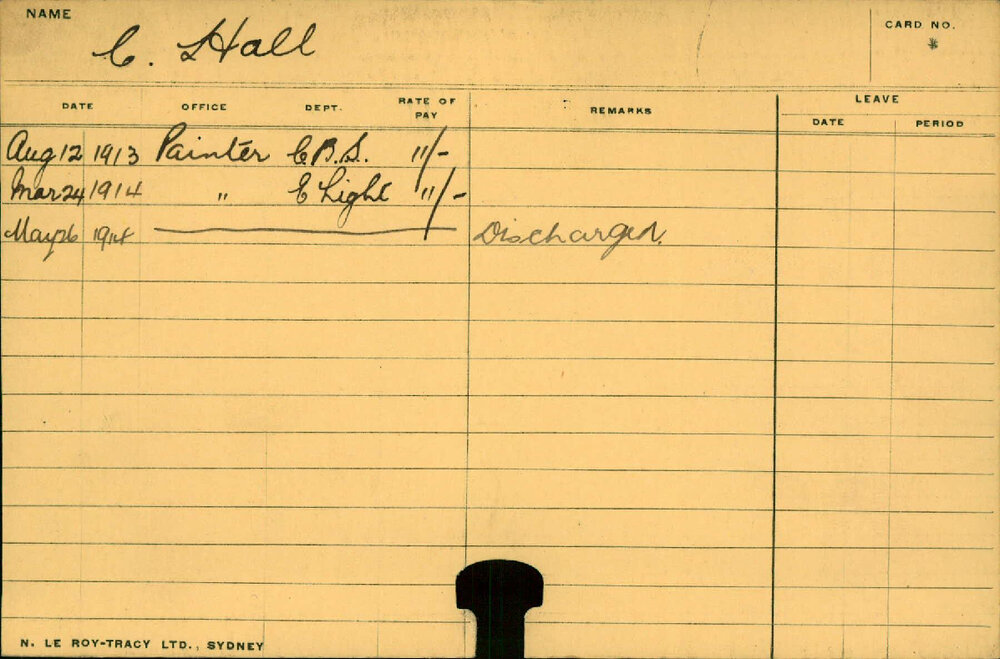 NAME
C. Hall
CARD NO.
*
DATE OFFICE DEPT. RATE OF PAY REMARKS LEAVE
DATE PERIOD
Aug 12 1913 Painter C.B.S. 11/-
Mar 24 1914 " E Light 11/-
May 26 1914 Discharged.
N. LE ROY-TRACY LTD., SYDNEY